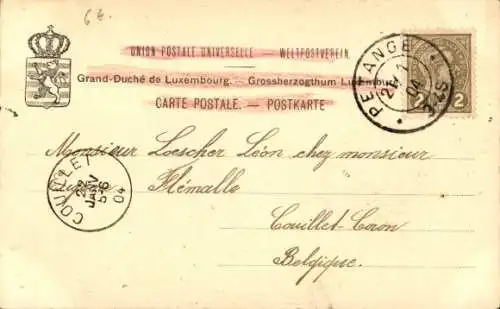 6 k
UNION POSTALE UNIVERSELLE — WELTPOSTVEREIN
Grand-Duché de Luxembourg. — Grossherzogthum Luxemburg
CARTE POSTALE. — POSTKARTE
PETANGE
04
2 2
Monsieur Loescher Léon chez monsieur
Flémalle
COUILLET
22
JANV
5-6
04
Couillet-Coron
Belgique.